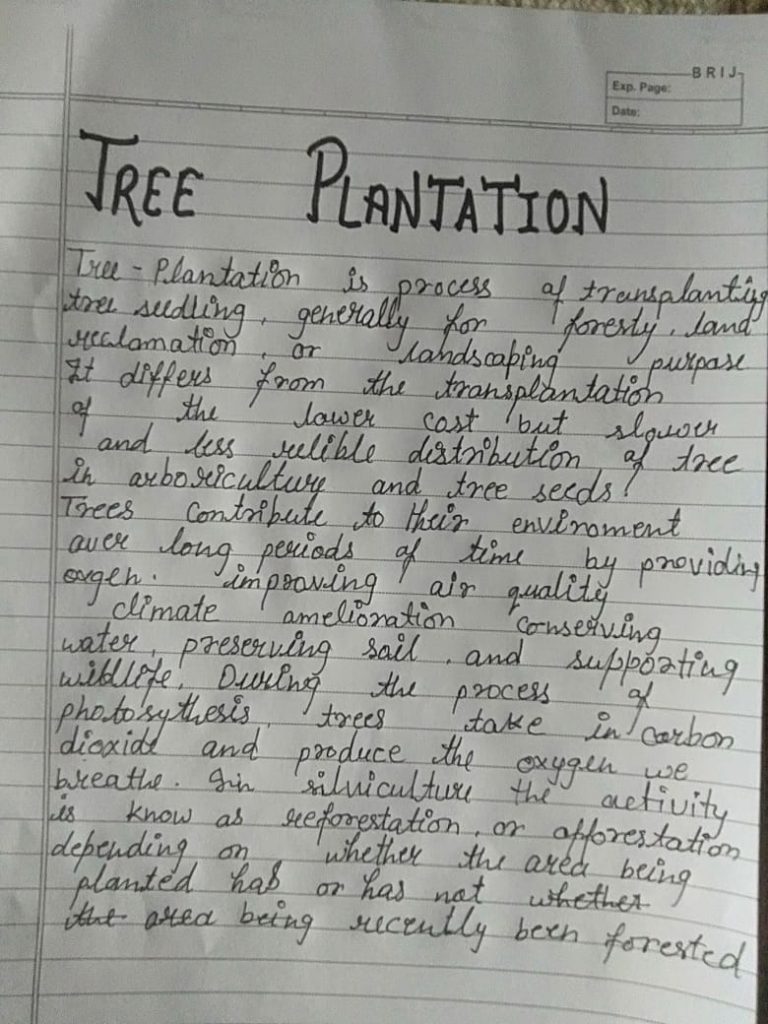 BRIJ
Exp. Page:
Date:
TREE PLANTATION
Tree - Plantation is process of transplanting
tree seedling, generally for foresty, land
reclamation, or landscaping purpase
It differs from the transplantation
of the lower cost but slower
and less relible distribution of tree
in arboriculture and tree seeds!
Trees contribute to their enviroment
over long periods of time by providing
oxgen. improving air quality
climate amelioration conserving
water, preserving sail, and supporting
wildlife. During the process of
photosythesis, trees take in carbon
dioxide and produce the oxygen we
breathe. In silviculture the activity
is know as reeforestation, or afforestation
depending on whether the area being
planted has or has not whether
the area being recently been forested